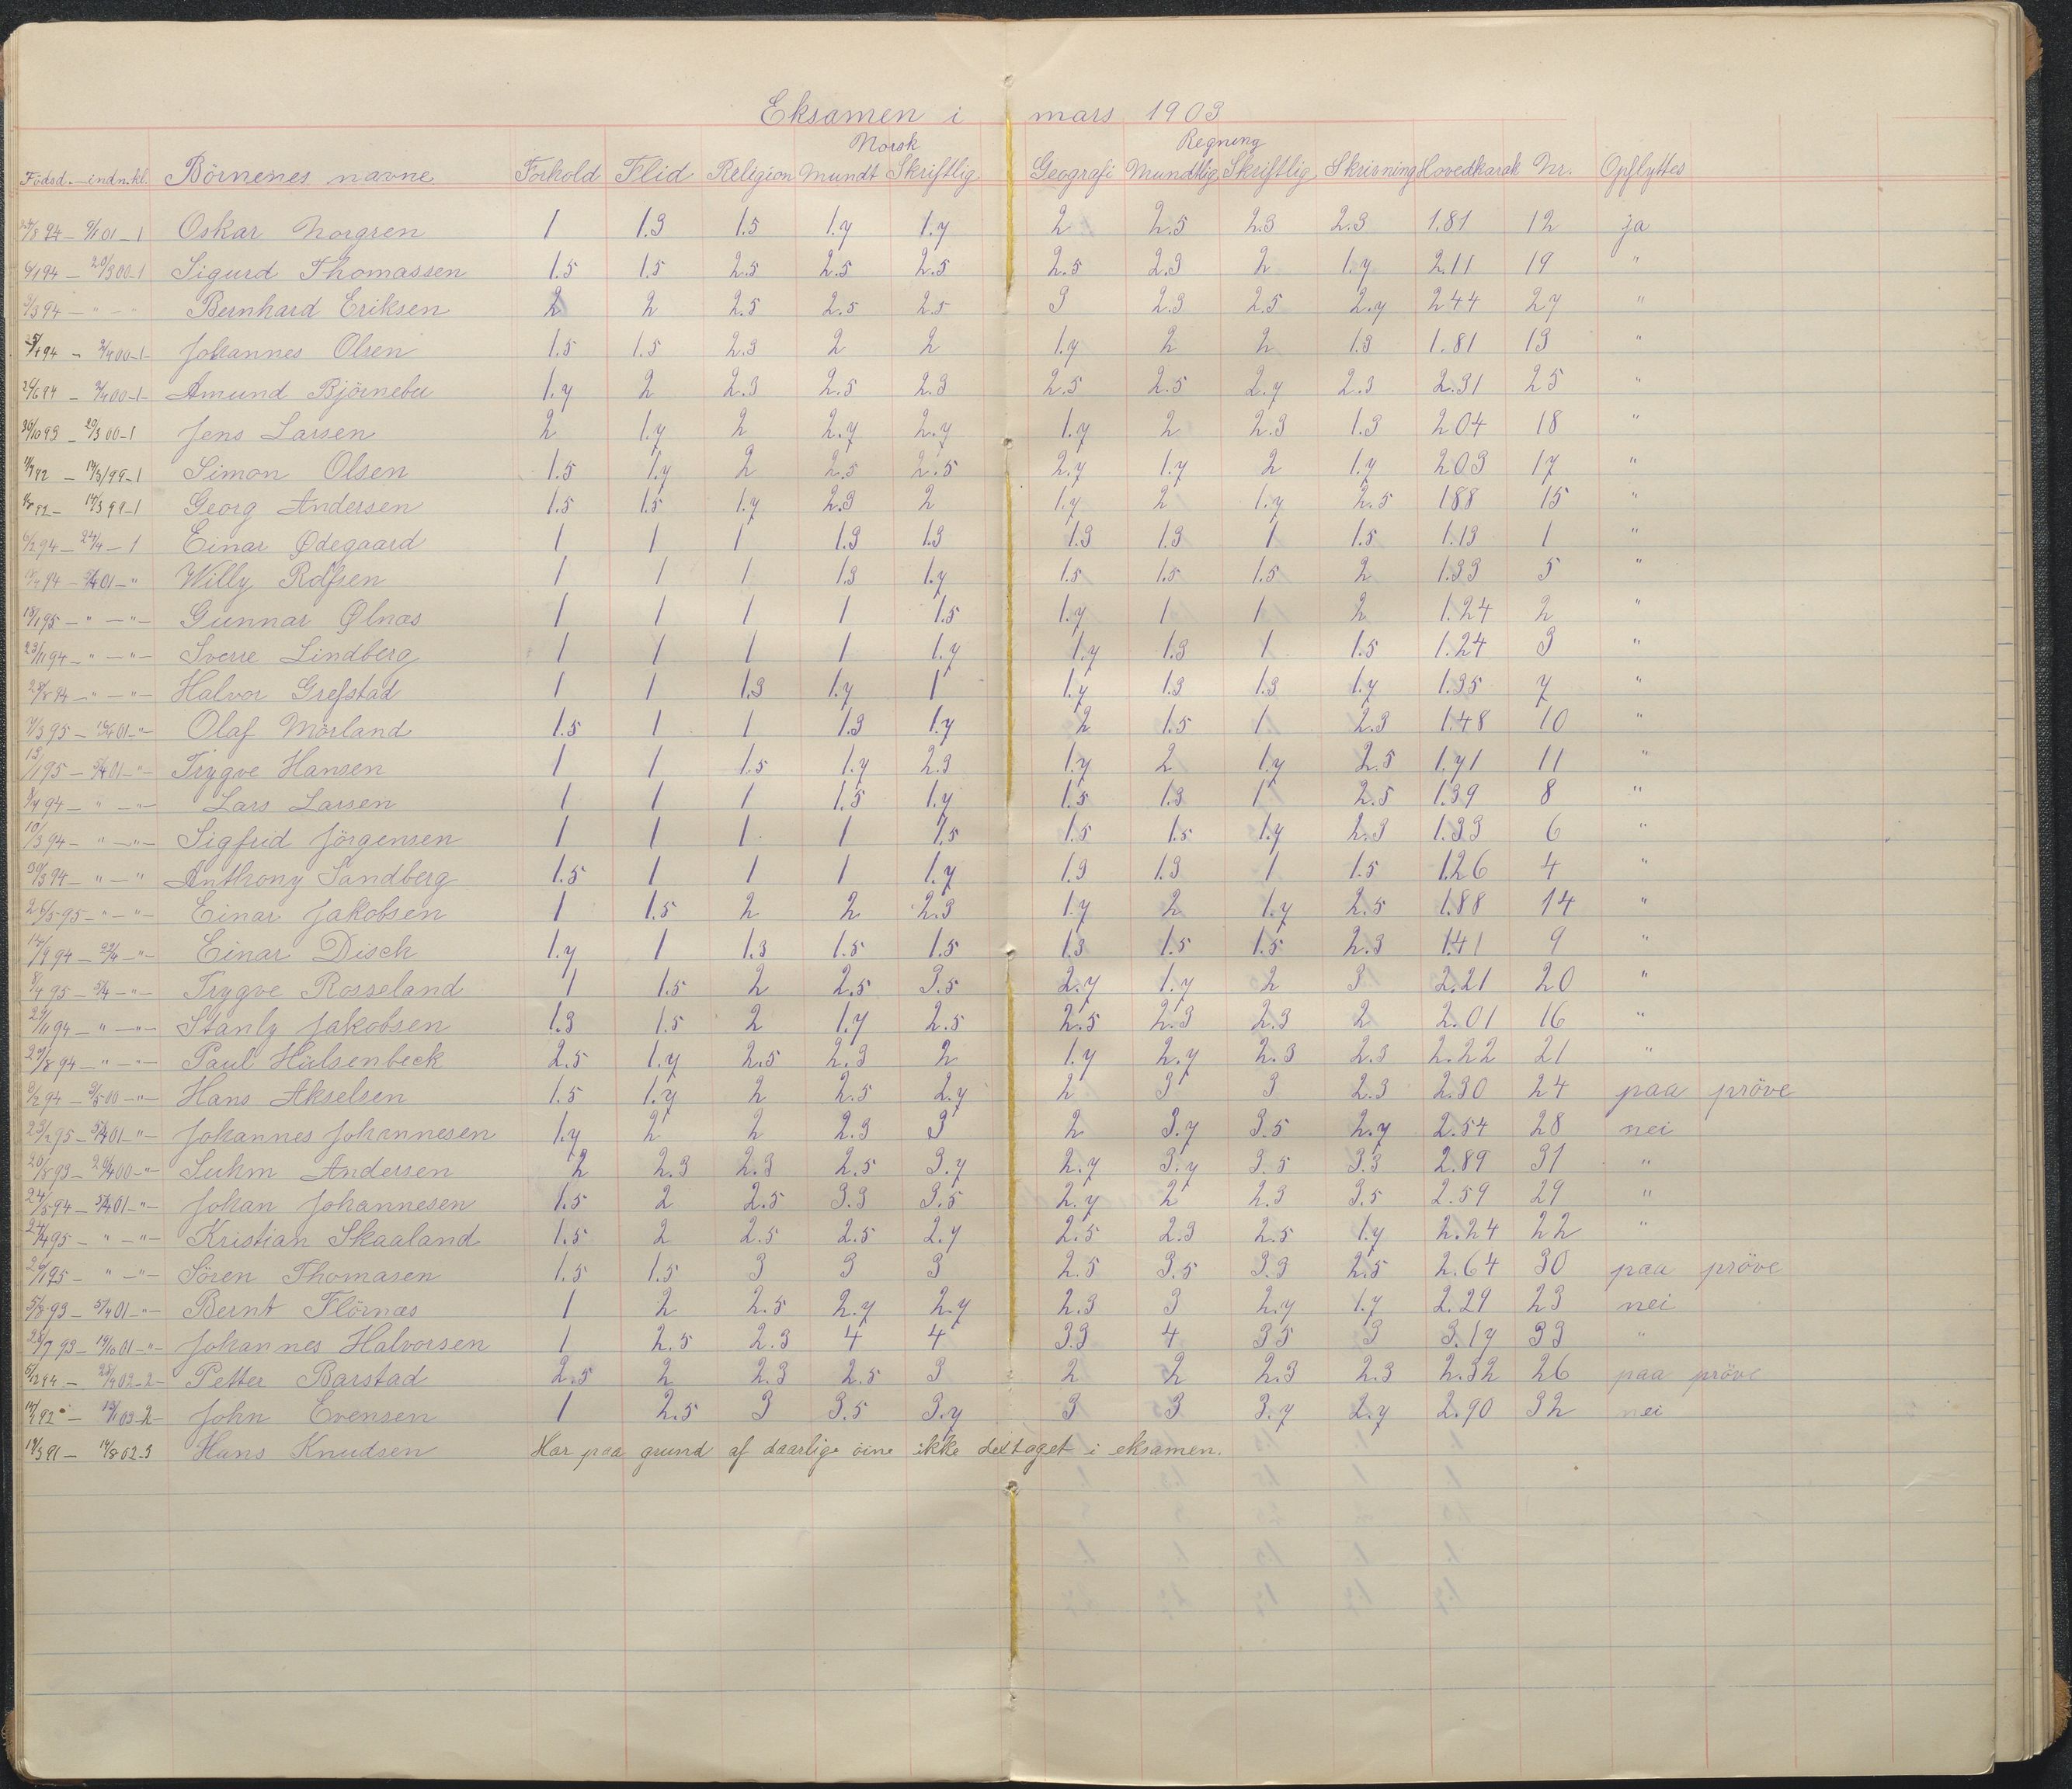 Eksamen i mars 1903
Norsk Regning
Födsd. — indn. kl. Börnenes navne Forhold Flid Religion Mundt Skriftlig Geografi Mundtlig Skriftlig Skrivning Hovedkarak Nr. Opflyttes
94 — 01 — 1 Oskar Norgren 1 1.3 1.5 1.7 1.7 2 2.5 2.3 2.3 1.81 12 ja
6/1 94 — 20/3 00 — 1 Sigurd Thomassen 1.5 1.5 2.5 2.5 2.5 2.5 2.3 2 1.7 2.11 19 "
3/3 94 — " — " Bernhard Eriksen 2 2 2.5 2.5 2.5 3 2.3 2.5 2.7 2.44 27 "
94 — 00 — 1 — Johannes Olsen 1.5 1.5 2.3 2 2 1.7 2 2 1.3 1.81 13 "
94 — 00 — 1 — Amund Björnebu 1.7 2 2.3 2.5 2.3 2.5 2.5 2.7 2.3 2.31 25 "
30/10 93 — 20/3 00 — 1 Jens Larsen 2 1.7 2 2.7 2.7 1.7 2 2.3 1.3 2.04 18 "
92 — 14/3 99 — 1 Simon Olsen 1.5 1.7 2 2.5 2.5 2.7 1.7 2 1.7 2.03 17 "
92 — 14/3 99 — 1 Georg Andersen 1.5 1.5 1.7 2.3 2 1.7 2 1.7 2.5 1.88 15 "
6/2 94 — 24/4 — 1 Einar Ødegaard 1 1 1 1.3 1.3 1.3 1.3 1 1.5 1.13 1 "
94 — 01 — " Willy Rolfsen 1 1 1 1.3 1.7 1.5 1.5 1.5 2 1.33 5 "
18/1 95 — " — " — Gunnar Ølnæs 1 1 1 1 1.5 1.7 1 1 2 1.24 2 "
23/11 94 — " — " — Sverre Lindberg 1 1 1 1 1.7 1.7 1.3 1 1.5 1.24 3 "
28/8 94 — " — " — Halvor Grefstad 1 1 1.3 1.7 1 1.7 1.3 1.3 1.7 1.35 7 "
95 — 01 — " — Olaf Mörland 1.5 1 1 1.3 1.7 2 1.5 1 2.3 1.48 10 "
13/1 95 — 5/4 01 — " — Trygve Hansen 1 1 1.5 1.7 2.3 1.7 2 1.7 2.5 1.71 11 "
94 — " — " — Lars Larsen 1 1 1 1.5 1.7 1.5 1.3 1 2.5 1.39 8 "
10/3 94 — " — " — Sigfrid Jörgensen 1 1 1 1 1.5 1.5 1.5 1.7 2.3 1.33 6 "
30/3 94 — " — " Anthony Sandberg 1.5 1 1 1 1.7 1.3 1.3 1 1.5 1.26 4 "
26/5 95 — " — " — Einar Jakobsen 1 1.5 2 2 2.3 1.7 2 1.7 2.5 1.88 14 "
94 — " — Einar Disch 1.7 1 1.3 1.5 1.5 1.3 1.5 1.5 2.3 1.41 9 "
8/4 95 — 5/4 — " — Trygve Rosseland 1 1.5 2 2.5 3.5 2.7 1.7 2 3 2.21 20 "
94 — " — " — Stanly Jakobsen 1.3 1.5 2 1.7 2.5 2.5 2.3 2.3 2 2.01 16 "
29/8 94 — " — " — Paul Halsenbeck 2.5 1.7 2.5 2.3 2 1.7 2.7 2.3 2.3 2.22 21 "
94 — 00 — " — Hans Akselsen 1.5 1.7 2 2.5 2.7 2 3 3 2.3 2.30 24 paa pröve
95 — 5/4 01 — " — Johannes Johannesen 1.7 2 2 2.3 3 2 3.7 3.5 2.7 2.54 28 nei
20/8 93 — 20/4 00 — " — Suhm Andersen 2 2.3 2.3 2.5 3.7 2.7 3.7 3.5 3.3 2.89 31 "
24/5 94 — 5/4 01 — " — Johan Johannesen 1.5 2 2.5 3.3 3.5 2.7 2 2.3 3.5 2.59 29 "
24/4 95 — " — " — Kristian Skaaland 1.5 2 2.5 2.5 2.7 2.5 2.3 2.5 1.7 2.24 22 "
26/1 95 — " — " — Sören Thomasen 1.5 1.5 3 3 3 2.5 3.5 3.3 2.5 2.64 30 paa pröve
5/8 93 — 5/4 01 — " — Bernt Flörnæs 1 2 2.5 2.7 2.7 2.3 3 2.7 1.7 2.29 23 nei
28/7 93 — 14/10 01 — " — Johannes Halvorsen 1 2.5 2.3 4 4 3.3 4 3.5 3 3.17 33 "
94 — 02 — 2 — Petter Barstad 2.5 2 2.3 2.5 3 2 2 2.3 2.3 2.32 26 paa pröve
92 — 03 — 2 — John Evensen 1 2.5 3 3.5 3.7 3 3 3.7 2.7 2.90 32 nei
14/3 91 — 14/8 02 — 3 Hans Knudsen Har paa grund af daarlige öine ikke deltaget i eksamen.